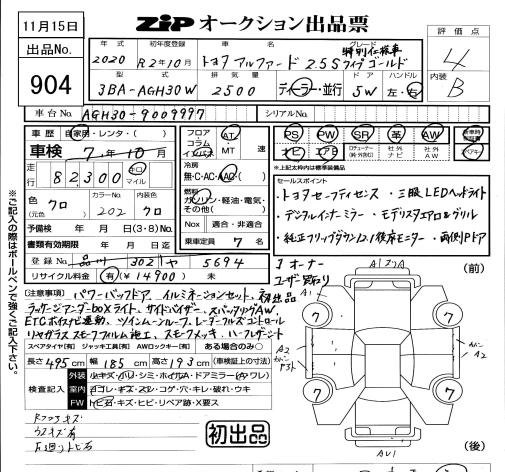 11月15日
ZIP オークション出品票
評価点
4
内装
B
出品No.
904
年式 初年度登録 車名 グレード
特別仕様車
2020 R2年10月 トヨタ アルファード 2.5S タイプゴールド
型式 排気量 ドア ハンドル
3BA-AGH30W 2500 ディーラー・並行 5W 左・右
車台No. AGH30-9009997 シリアルNo.
車歴 自家用・レンタ・( )
車検 7年10月
走行 82300 キロ マイル
色 クロ (元色) カラーNo. 202 内装色 クロ
予備検 年 月 日(3・8)No.
書類有効期限 年 月 日
登録No. 品川 302 や 5694
リサイクル料金 有(¥14900) 未
フロア コラム インパネ AT MT 速
冷房 無・C・AC・AAC
燃料 ガソリン・軽油・電気・その他( )
Nox 適合・非適合
乗車定員 7 名
PS PW SR 革 AW
ナビ エアB 社外ナビ 社外AW
※上記太わくは標準装備品
セールスポイント
・トヨタセーフティセンス ・三眼LEDヘッドライト
・デジタルインナーミラー ・モデリスタエアロ&グリル
・純正フリップダウン12.1後席モニター ・両側Pドア
注意事項
パワーバックドア イルミネーションセット 初出品
ラッゲージアンダーboxライト サイドバイザー スパッタリングAW
ETCボイスナビ連動 ツインムーンルーフ レーダークルーズコントロール
リヤガラススモークフィルム施工 スモークメッキ ハーフレザーシート
スペアタイヤ(有) ジャッキ工具(有) AWロックキー(有) ある場合のみ○
長さ 495cm 幅 185cm 高さ 193cm (車検証上の寸法)
検査記入
外装 小キズ・ハリ・シミ・ホイールA・ドアミラー(ワレ)
室内 ヨゴレ・キズ・スレ・コゲ・穴・キレ・破れ・ウキ
FW トビ石・キズ・ヒビ・リペア跡・X要ス
下廻りトビ石
初出品
1オーナー
ユーザー買取り
(前)
A1
A2
7 7
7 7
AU1
(後)
※ご記入の際はボールペンで強くご記入下さい。